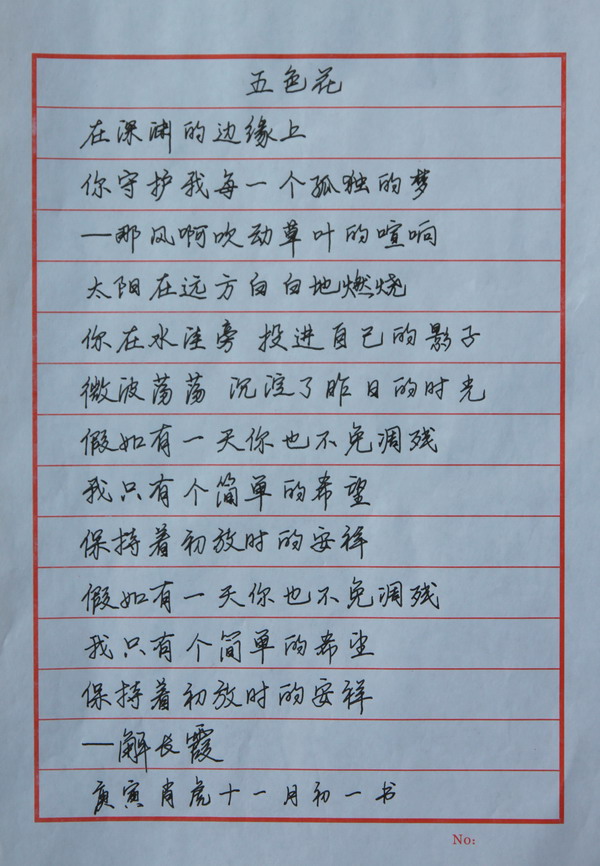 五色花
在深渊的边缘上
你守护我每一个孤独的梦
—那风啊吹动草叶的喧响
太阳在远方白白地燃烧
你在水洼旁 投进自己的影子
微波荡荡 沉淀了昨日的时光
假如有一天你也不免凋残
我只有个简单的希望
保持着初放时的安祥
假如有一天你也不免凋残
我只有个简单的希望
保持着初放时的安祥
—解长霞
庚寅肖虎十一月初一书
No: